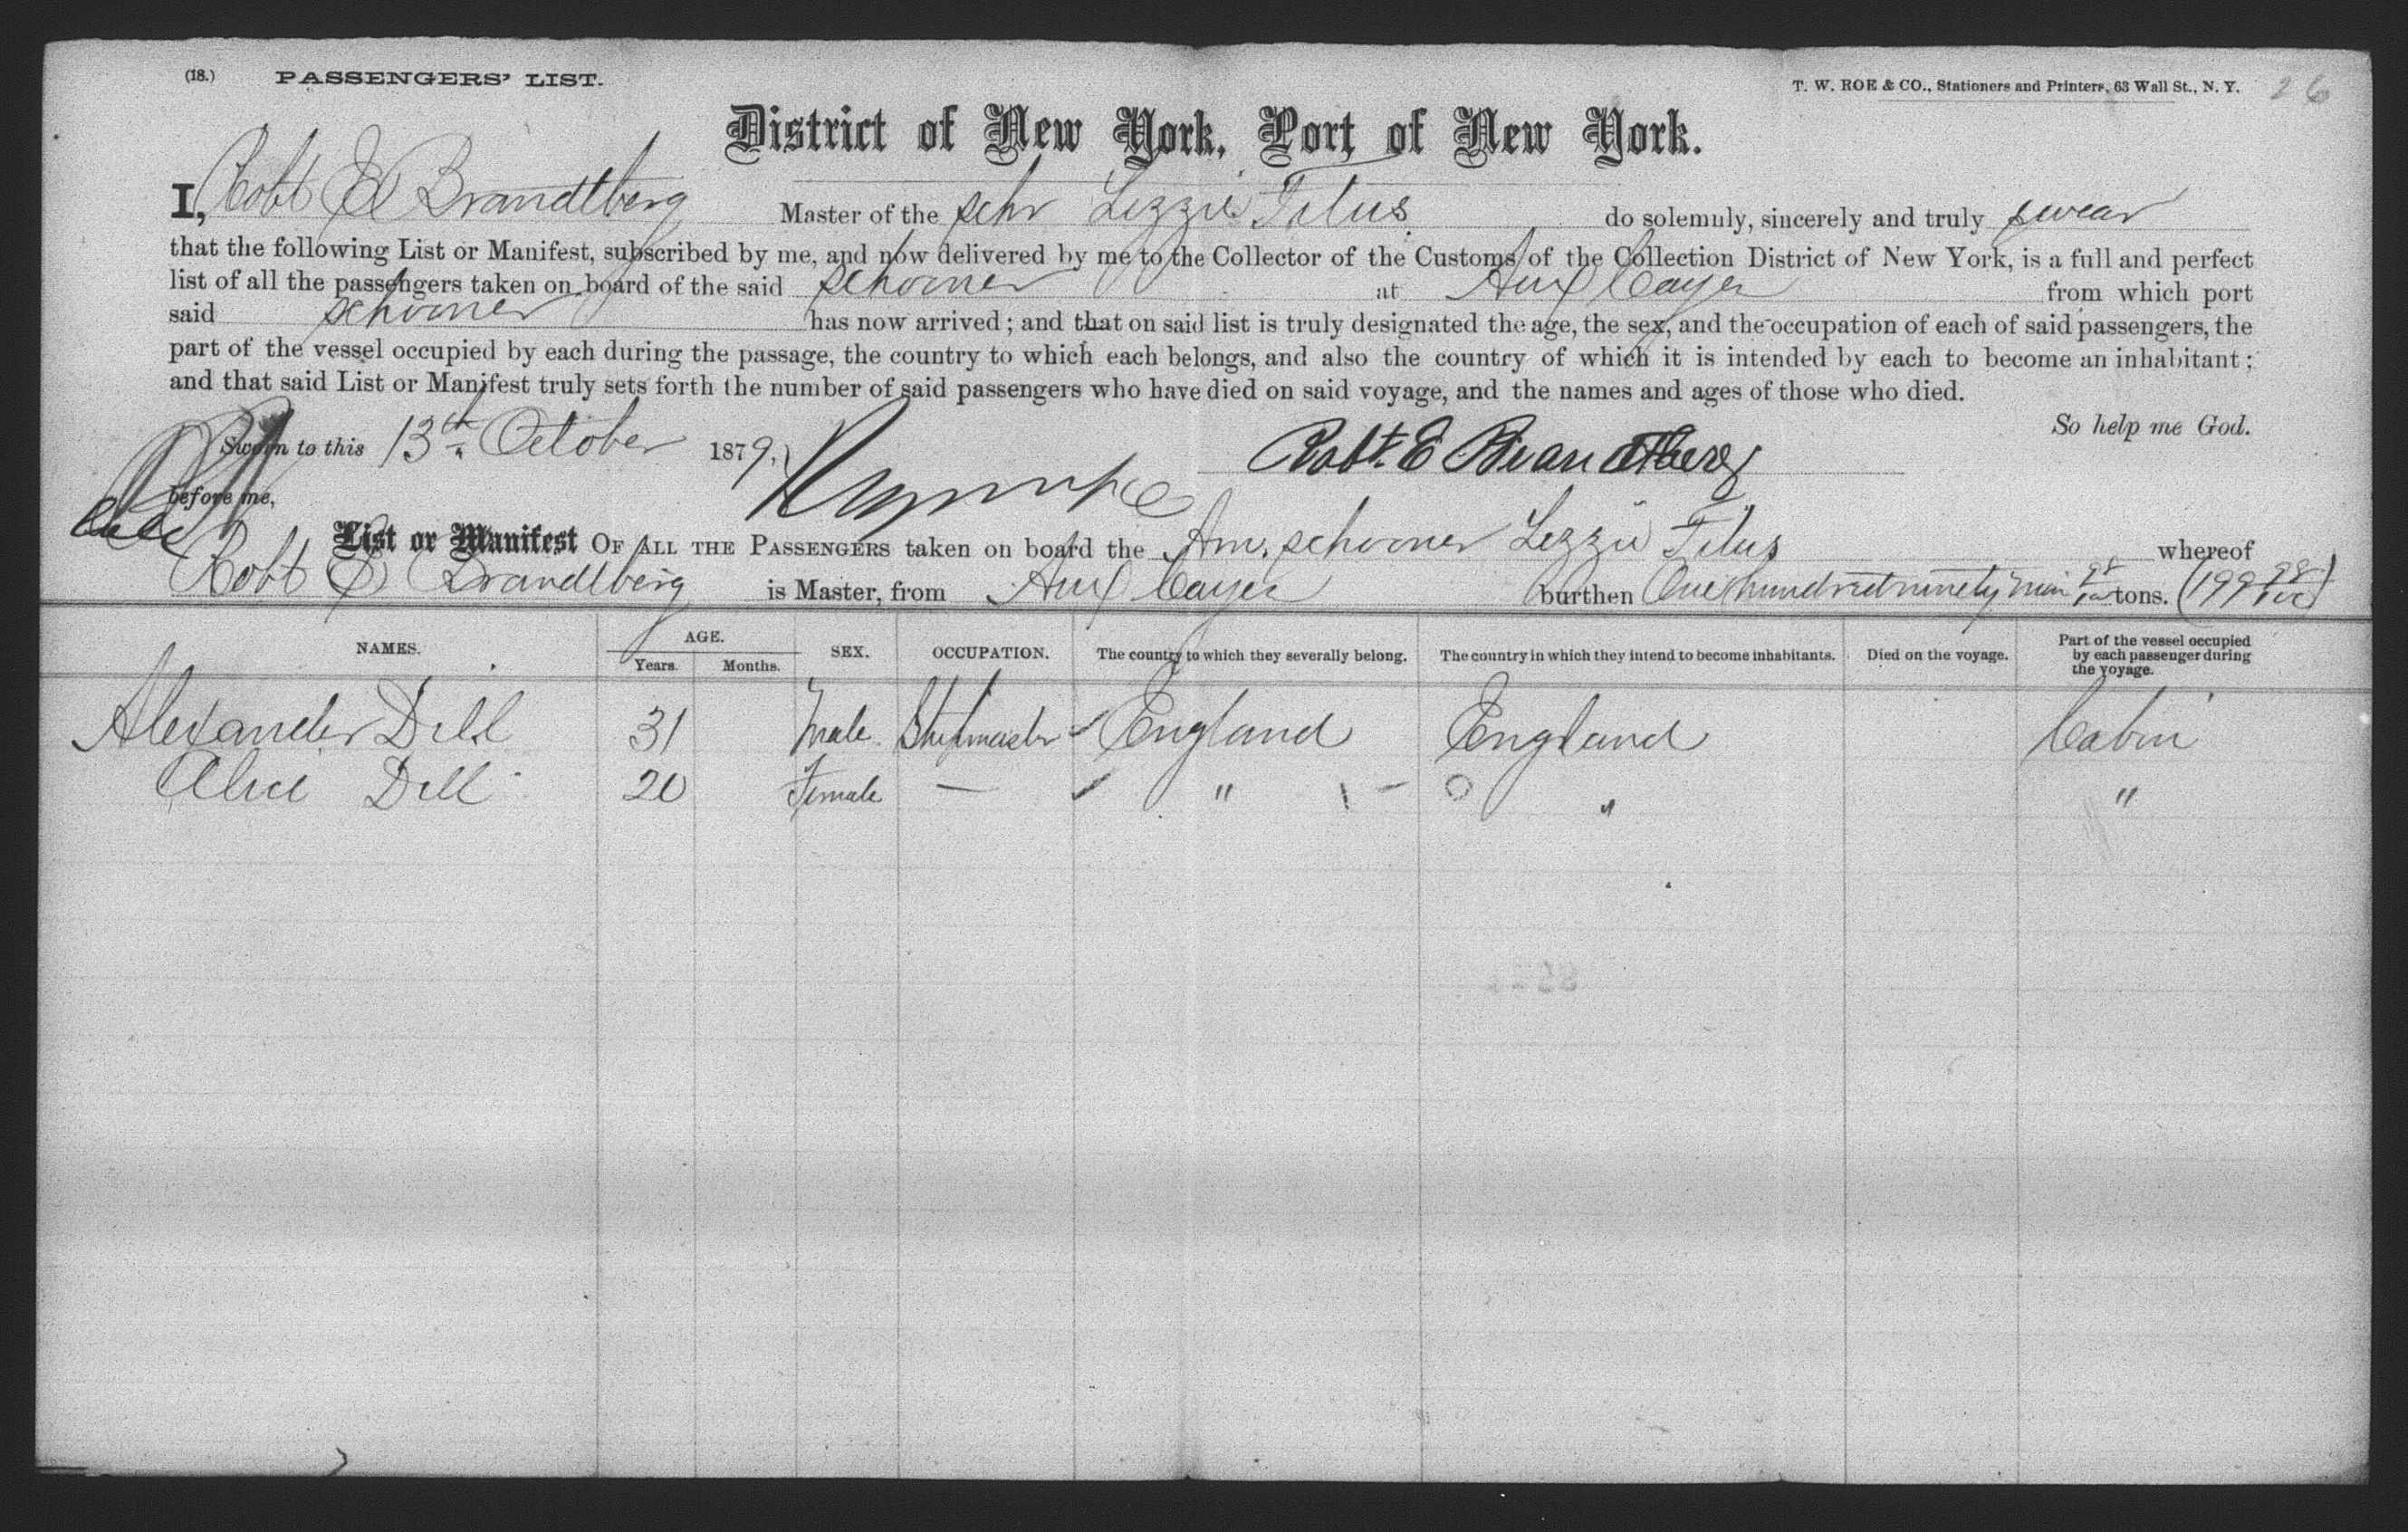 (18.) PASSENGERS' LIST. T. W. ROE & CO., Stationers and Printers, 63 Wall St., N. Y. 26
District of New York, Port of New York.
I, Robt E Brandtberg Master of the schr Lizzie Titus do solemnly, sincerely and truly swear
that the following List or Manifest, subscribed by me, and now delivered by me to the Collector of the Customs of the Collection District of New York, is a full and perfect
list of all the passengers taken on board of the said schooner at Aux Cayes from which port
said schooner has now arrived; and that on said list is truly designated the age, the sex, and the occupation of each of said passengers, the
part of the vessel occupied by each during the passage, the country to which each belongs, and also the country of which it is intended by each to become an inhabitant;
and that said List or Manifest truly sets forth the number of said passengers who have died on said voyage, and the names and ages of those who died.
So help me God.
Sworn to this 13th October 1879, Robt. E Brandtberg
before me,
List or Manifest OF ALL THE PASSENGERS taken on board the Am. schooner Lizzie Titus whereof
Robt E Brandtberg is Master, from Aux Cayes burthen One hundred ninety nine 98/100 tons. (199 98/100)
NAMES. AGE. Years. Months. SEX. OCCUPATION. The country to which they severally belong. The country in which they intend to become inhabitants. Died on the voyage. Part of the vessel occupied by each passenger during the voyage.
Alexander Dill 31 Male Shipmaster England England Cabin
Alice Dill 20 Female — " " "